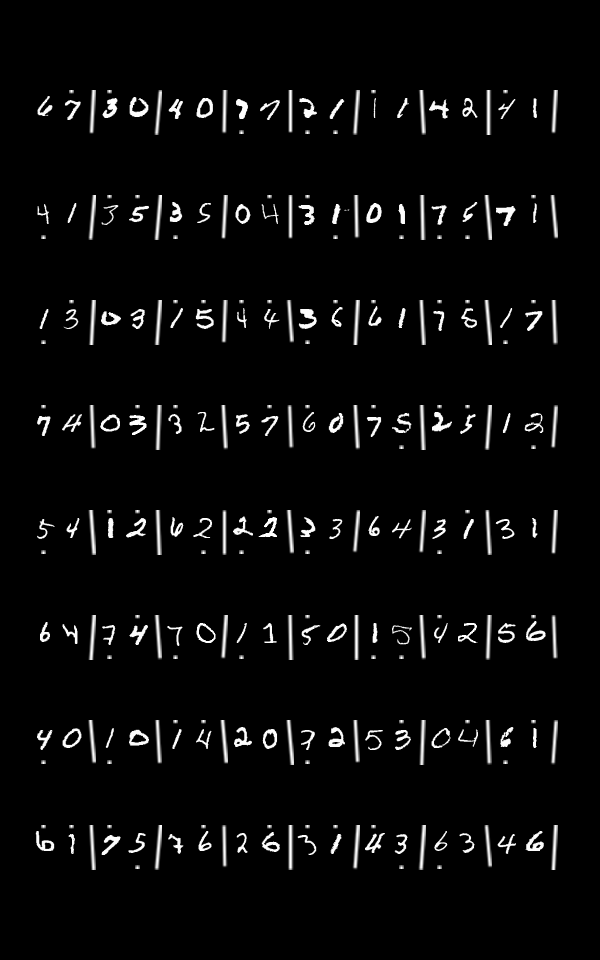 6 7 | 3 0 | 4 0 | 7 7 | 2 1 | 1 1 | 4 2 | 4 1 |
4 1 | 3 5 | 3 5 | 0 4 | 3 1 | 0 1 | 7 5 | 7 1 |
1 3 | 0 3 | 1 5 | 4 4 | 3 6 | 6 1 | 7 5 | 1 7 |
7 4 | 0 3 | 3 2 | 5 7 | 6 0 | 7 5 | 2 5 | 1 2 |
5 4 | 1 2 | 6 2 | 2 2 | 3 3 | 6 4 | 3 1 | 3 1 |
6 4 | 7 4 | 7 0 | 1 1 | 5 0 | 1 5 | 4 2 | 5 6 |
4 0 | 1 0 | 1 4 | 2 0 | 7 2 | 5 3 | 0 4 | 6 1 |
6 1 | 7 5 | 7 6 | 2 6 | 3 1 | 4 3 | 6 3 | 4 6 |